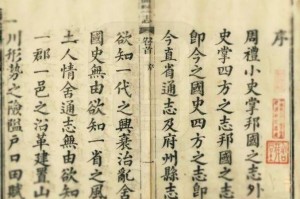 序
周禮小史掌邦國之志外
史掌四方之志邦國之志
卽今之國史四方之志卽
今直省通志及府州縣志
欲知一代之興衰治亂舍
國史無由欲知一省之風
土人情舍通志無由欲知
一郡一邑之沿革建置山
川形勢之險隘戶口田賦